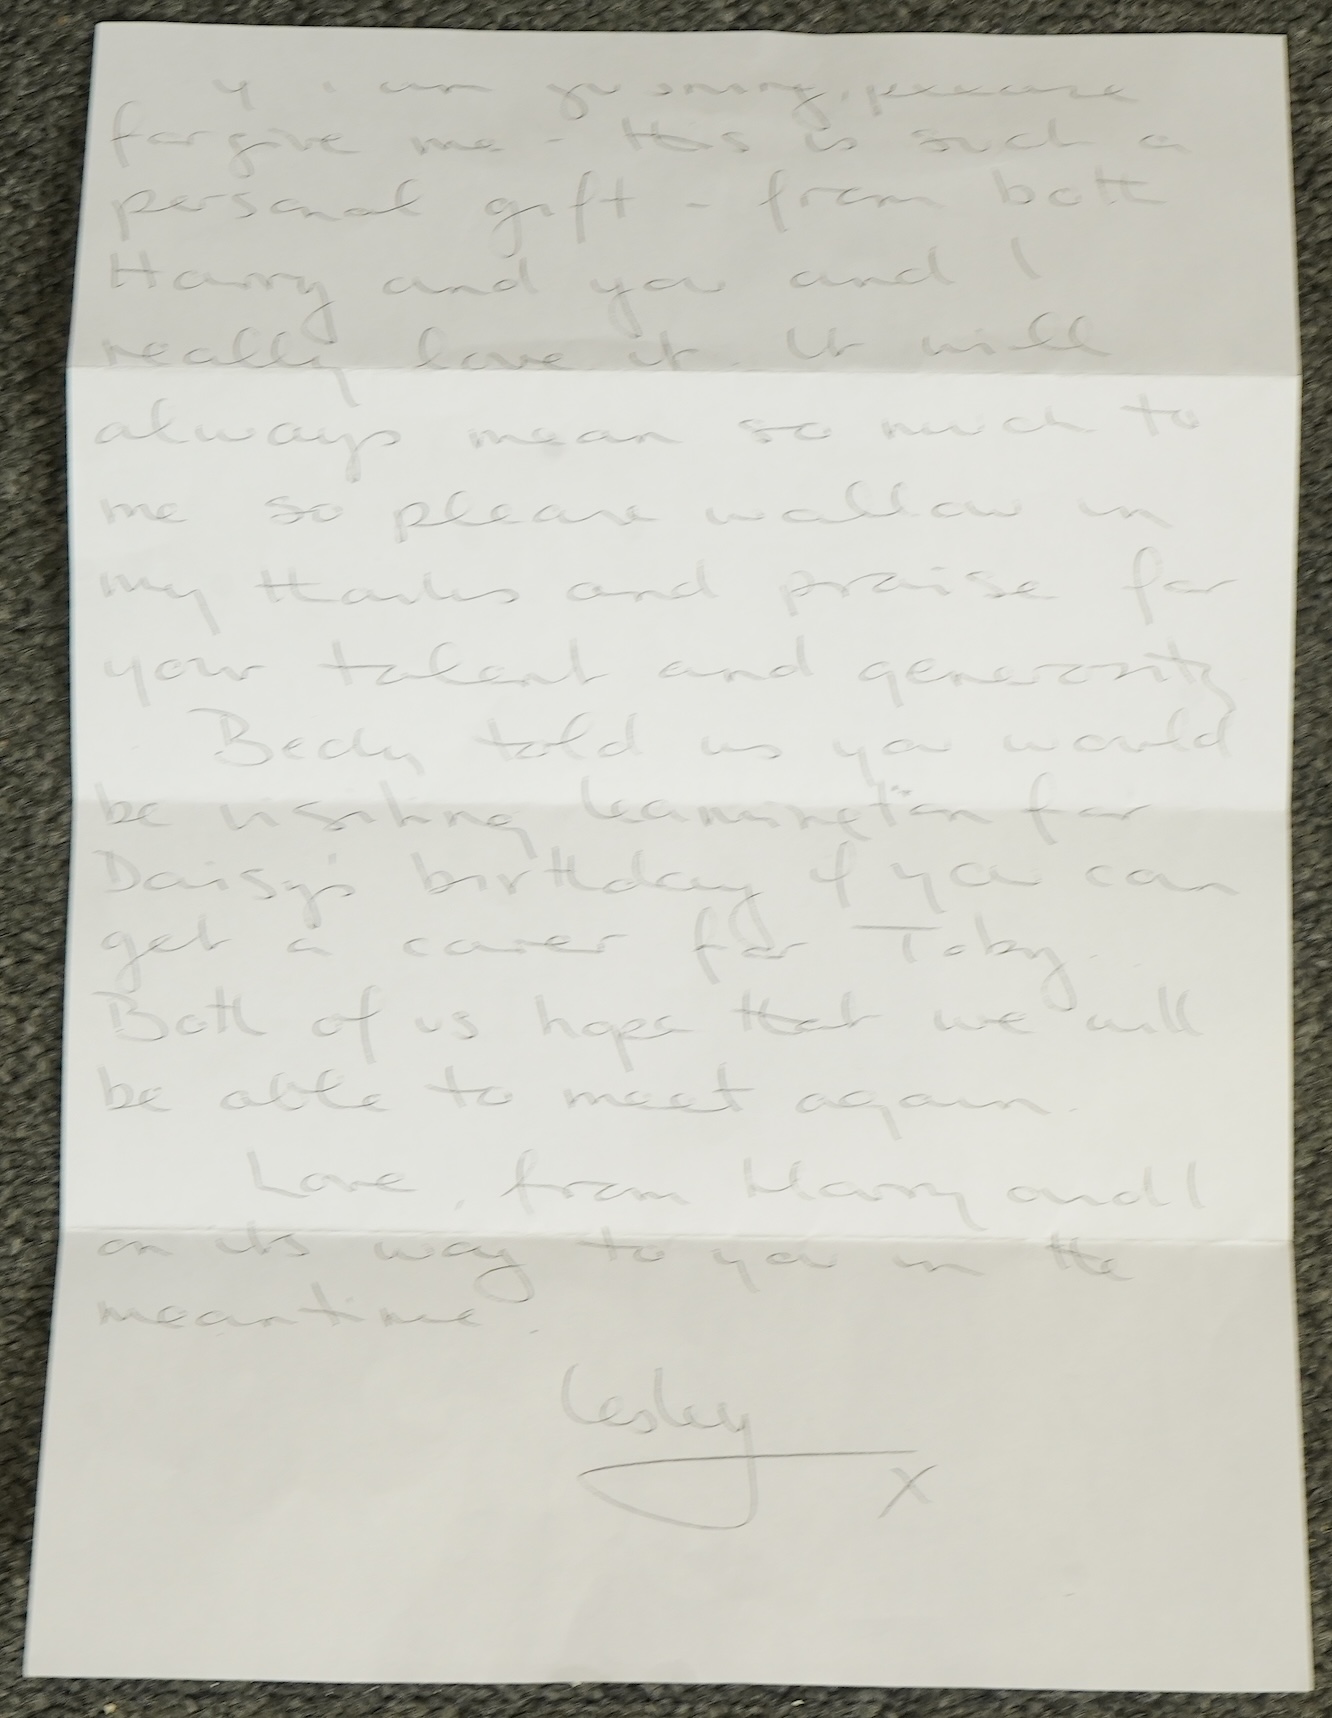 If I am gushing, please
forgive me - this is such a
personal gift - from both
Harry and you and I
really love it. It will
always mean so much to
me so please wallow in
my thanks and praise for
your talent and generosity
Becky told us you would
be visiting Leamington for
Daisy's birthday if you can
get a carer for Toby.
Both of us hope that we will
be able to meet again.
Love, from Harry and I
on its way to you in the
meantime.
Lesley
x